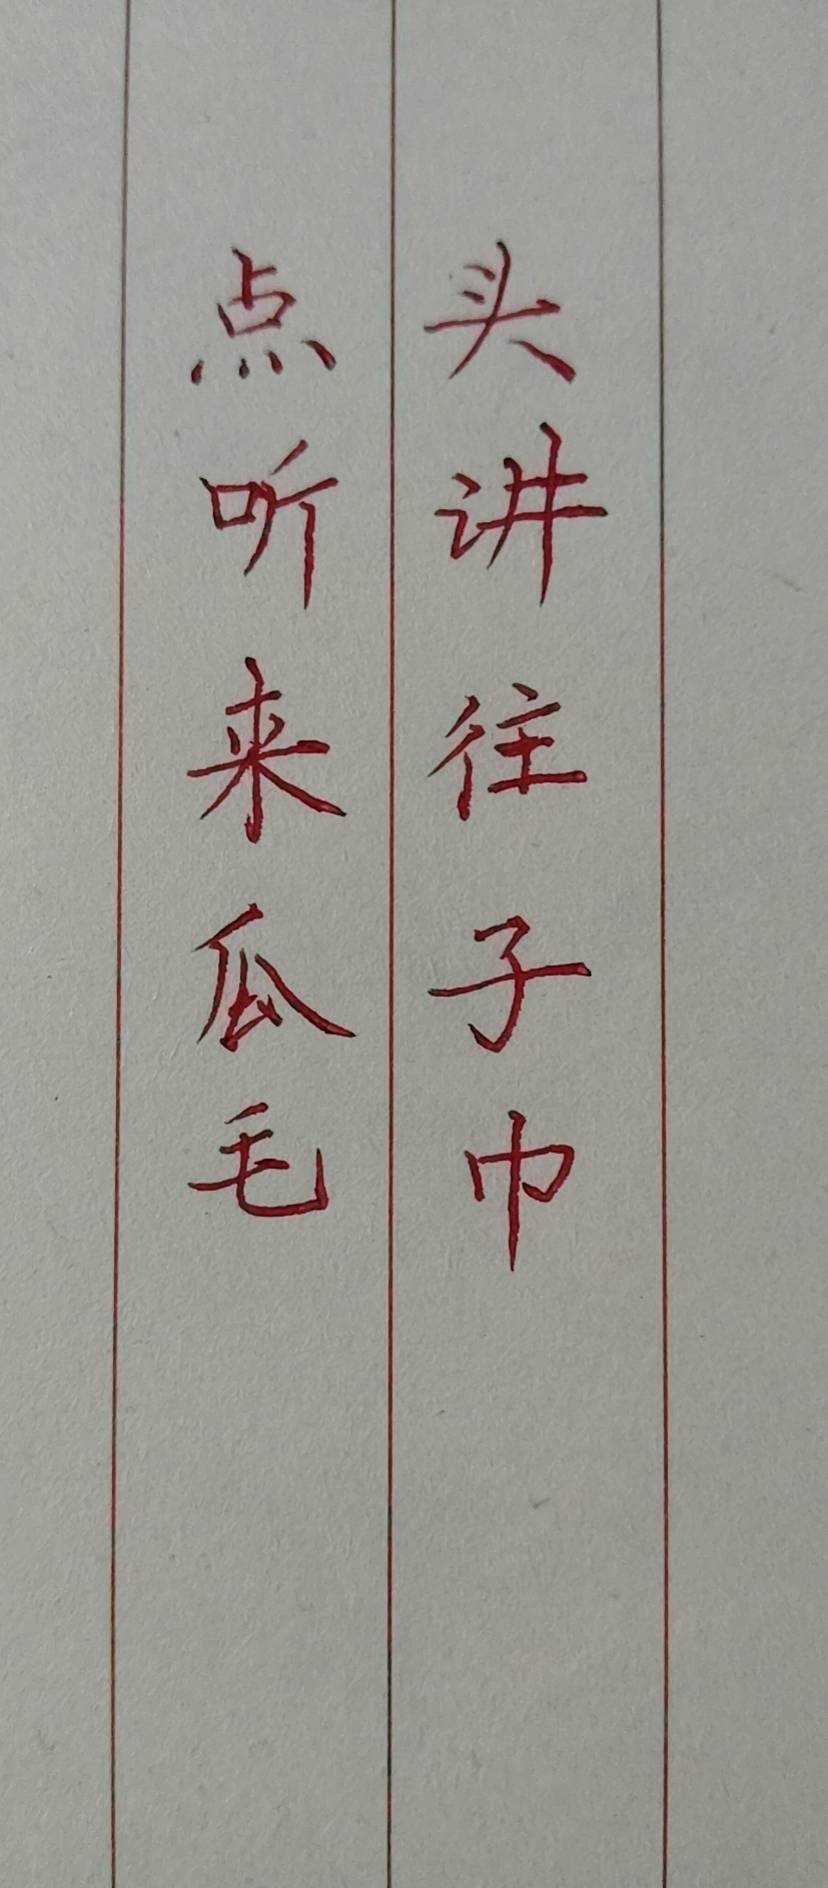 头讲往子巾
点听来瓜毛